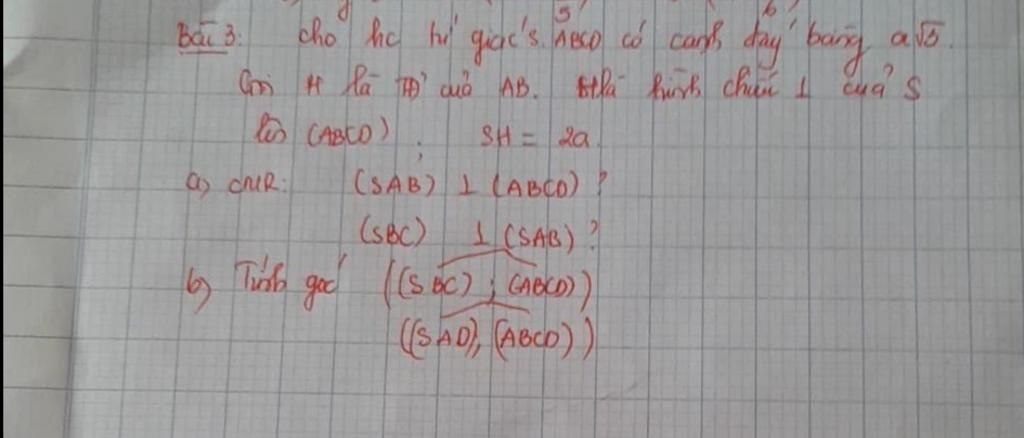 Bài 3: cho hc tứ giác S.ABCD có cạnh đáy bằng a√5.
Gọi H là TĐ của AB. H là hình chiếu ⊥ của S
lên (ABCD). SH = 2a
a) CMR: (SAB) ⊥ (ABCD)?
(SBC) ⊥ (SAB)?
b) Tính góc ((SBC); (ABCD))
((SAD), (ABCD))